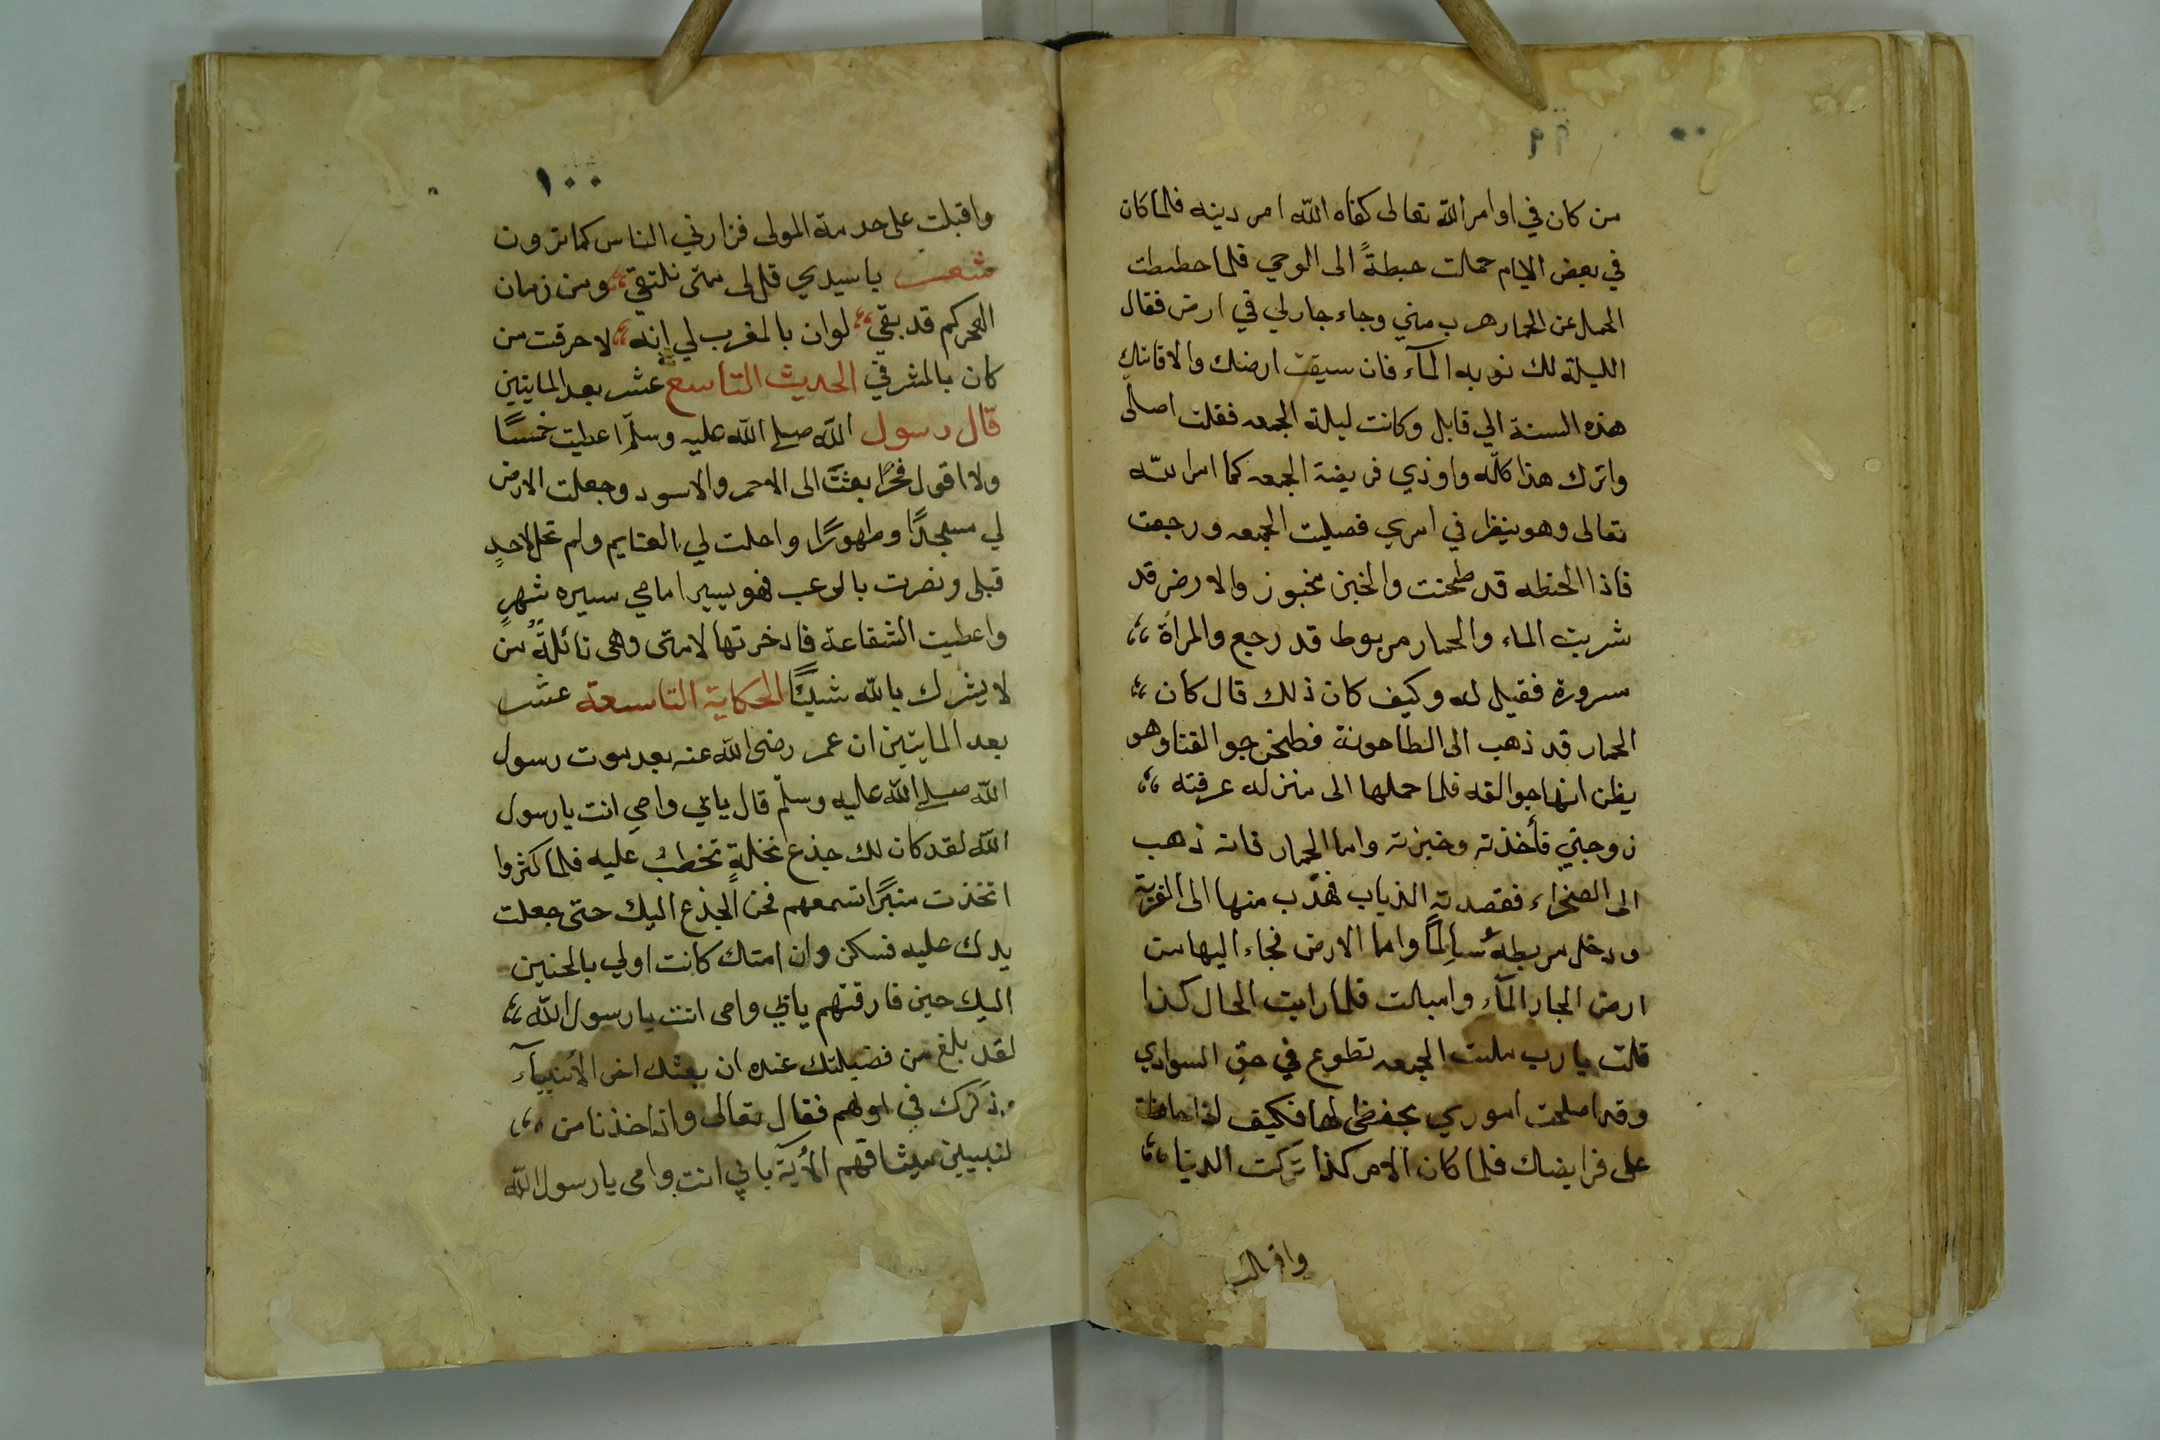 من كان في اوامر الله تعالى كفاه الله امر دينه فلما كان
في بعض الايام حملت حبطةً الى الوحي فلما حططت
الحمل عن الحمار هرب مني وجاء جار لي في ارض فقال
الليلة لك نوبه المآء فان سيقت ارضك والا فاتتك
هذه السنة الي قابل وكانت ليلة الجمعه فقلت اصلى
واترك هذا كلّه واوذي فريضة الجمعه كما امر الله
تعالى وهو ينظر في امري فصليت الجمعه ورجعت
فاذا الحنطه قد طحنت والخبز مخبوز والارض قد
شربت الماء والحمار مربوط قد رجع والمرأة
سرورة فقيل له وكيف كان ذلك قال كان
الحمار قد ذهب الى الطاحونة فطخن جوالقنا وهو
يظن انها جوالقه فلما حملها الى منزله عرفته
زوجتي فأخذته وخبزته واما الحمار فانه ذهب
الى الصخراء فقصدته الذياب فهرب منها الى القرية
ودخل مربطه سالمًا واما الارض فجاء اليها من
ارض الجار المآء وامبالت فلما رايت الحال كذا
قلت يا رب صليت الجمعه تطوع في حق السوادي
وقد اصلحت اموري بحفظى لها فكيف لو احافظ
على فرايضك فلما كان الامر كذا تركت الدنيا
واقبلت
١٠٠
واقبلت على خدمة المولى فزارني الناس كما ترون
شعر يا سيدي قل لى متى نلتقي ومن زمان
الهجر كم قد بقي لو ان بالمغرب لي إنه لاحرقت من
كان بالمشرق الحديث التاسع عشر بعد المايتين
قال رسول الله صلى الله عليه وسلّم اعطيت خمسًا
ولا اقول فخرًا بعثت الى الاحمر والاسود وجعلت الارض
لي مسجدًا وطهورًا واحلت لي الغنايم ولم تحل لاحدٍ
قبلى ونصرت بالرعب فهو يسير امامي مسيره شهرٍ
واعطيت الشفاعة فادخرتها لامتى وهى نائلةٌ من
لا يشرك بالله شيئًا الحكاية التاسعة عشر
بعد المايتين ان عمر رضى الله عنه بعد موت رسول
الله صلى الله عليه وسلّم قال بابي وامي انت يا رسول
الله لقد كان لك جذع نخلةٍ تخطبُ عليه فلما كثروا
اتخذت منبرًا تسمعهم فحن الجذع اليك حتى جعلت
يدك عليه فسكن وان امتك كانت اولي بالحنين
اليك حين فارقتهم بابي وامى انت يا رسول الله
لقد بلغ من فضيلتك عنده ان بعثك اخر الأنبيآء
وذكرك في اولهم فقال تعالى واذ اخذنا من
لنبيين ميثاقهم الأية بابي انت وامى يا رسول الله